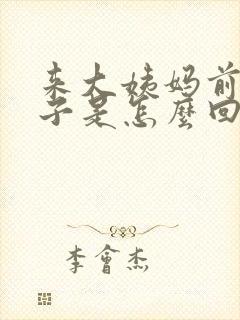 来大姨妈前
子是怎麼回
李會杰